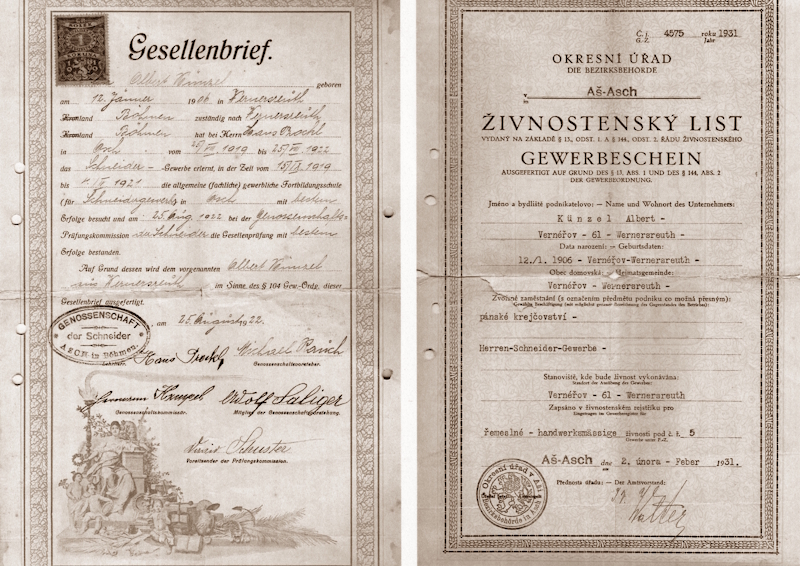 Gesellenbrief.
Albert Künzel geboren
am 12. Jänner 1906 in Wernersreuth
Kronland Böhmen zuständig nach Wernersreuth
Kronland Böhmen hat bei Herrn Hans Prockl
in Asch vom 25/VIII 1919 bis 25/VIII 1922
das Schneider- Gewerbe erlernt, in der Zeit vom 15/IX 1919
bis 1921 die allgemeine (fachliche) gewerbliche Fortbildungsschule
(für Schneidergewerb) in Asch mit bestem
Erfolge besucht und am 25. Aug. 1922 bei der Genossenschafts-
Prüfungskommission der Schneider die Gesellenprüfung mit bestem
Erfolge bestanden.
Auf Grund dessen wird dem vorgenannten Albert Künzel
aus Wernersreuth im Sinne des § 104 Gew.-Ordg. dieser
Gesellenbrief ausgefertigt.
am 25. August 1922.
GENOSSENSCHAFT
der Schneider
ASCH in Böhmen.
Hans Prockl
Genossenschaftsvorsteher.
Genossenschaftskommissär.
Adolf Saliger
Mitglied der Genossenschaftsvorstehung.
Schuster
Vorsitzender der Prüfungskommission.
Č. j. 4575 roku 1931
G. Z. Jahr
OKRESNÍ ÚŘAD
DIE BEZIRKSBEHÖRDE
v Aš-Asch
in
ŽIVNOSTENSKÝ LIST
VYDANÝ NA ZÁKLADĚ § 13., ODST. 1. A § 144., ODST. 2. ŘÁDU ŽIVNOSTENSKÉHO
GEWERBESCHEIN
AUSGEFERTIGT AUF GRUND DES § 13, ABS. 1 UND DES § 144, ABS. 2
DER GEWERBEORDNUNG.
Jméno a bydliště podnikatelovo: – Name und Wohnort des Unternehmers:
Künzel Albert -
Vernéřov - 61 - Wernersreuth -
Datum narození: – Geburtsdaten:
12./1. 1906 - Vernéřov-Wernersreuth -
Obec domovská: – Heimatsgemeinde:
Vernéřov - Wernersreuth -
Zvolené zaměstnání (s označením předmětu podniku co možná přesným):
pánské krejčovství -
Herren-Schneider-Gewerbe -
Stanoviště, kde bude živnost vykonávána:
Standort der Ausübung des Gewerbes:
Vernéřov - 61 - Wernersreuth -
Zapsáno v živnostenském rejstříku pro
Eingetragen im Gewerberegister für
řemeslné - handwerksmässige živnosti pod č. ř. 5
Gewerbe unter P.-Z.
Aš-Asch dne 2. února - Feber 1931.
Přednosta úřadu: – Der Amtsvorstand:
Okresní úřad v Aši
Bezirksbehörde in Asch